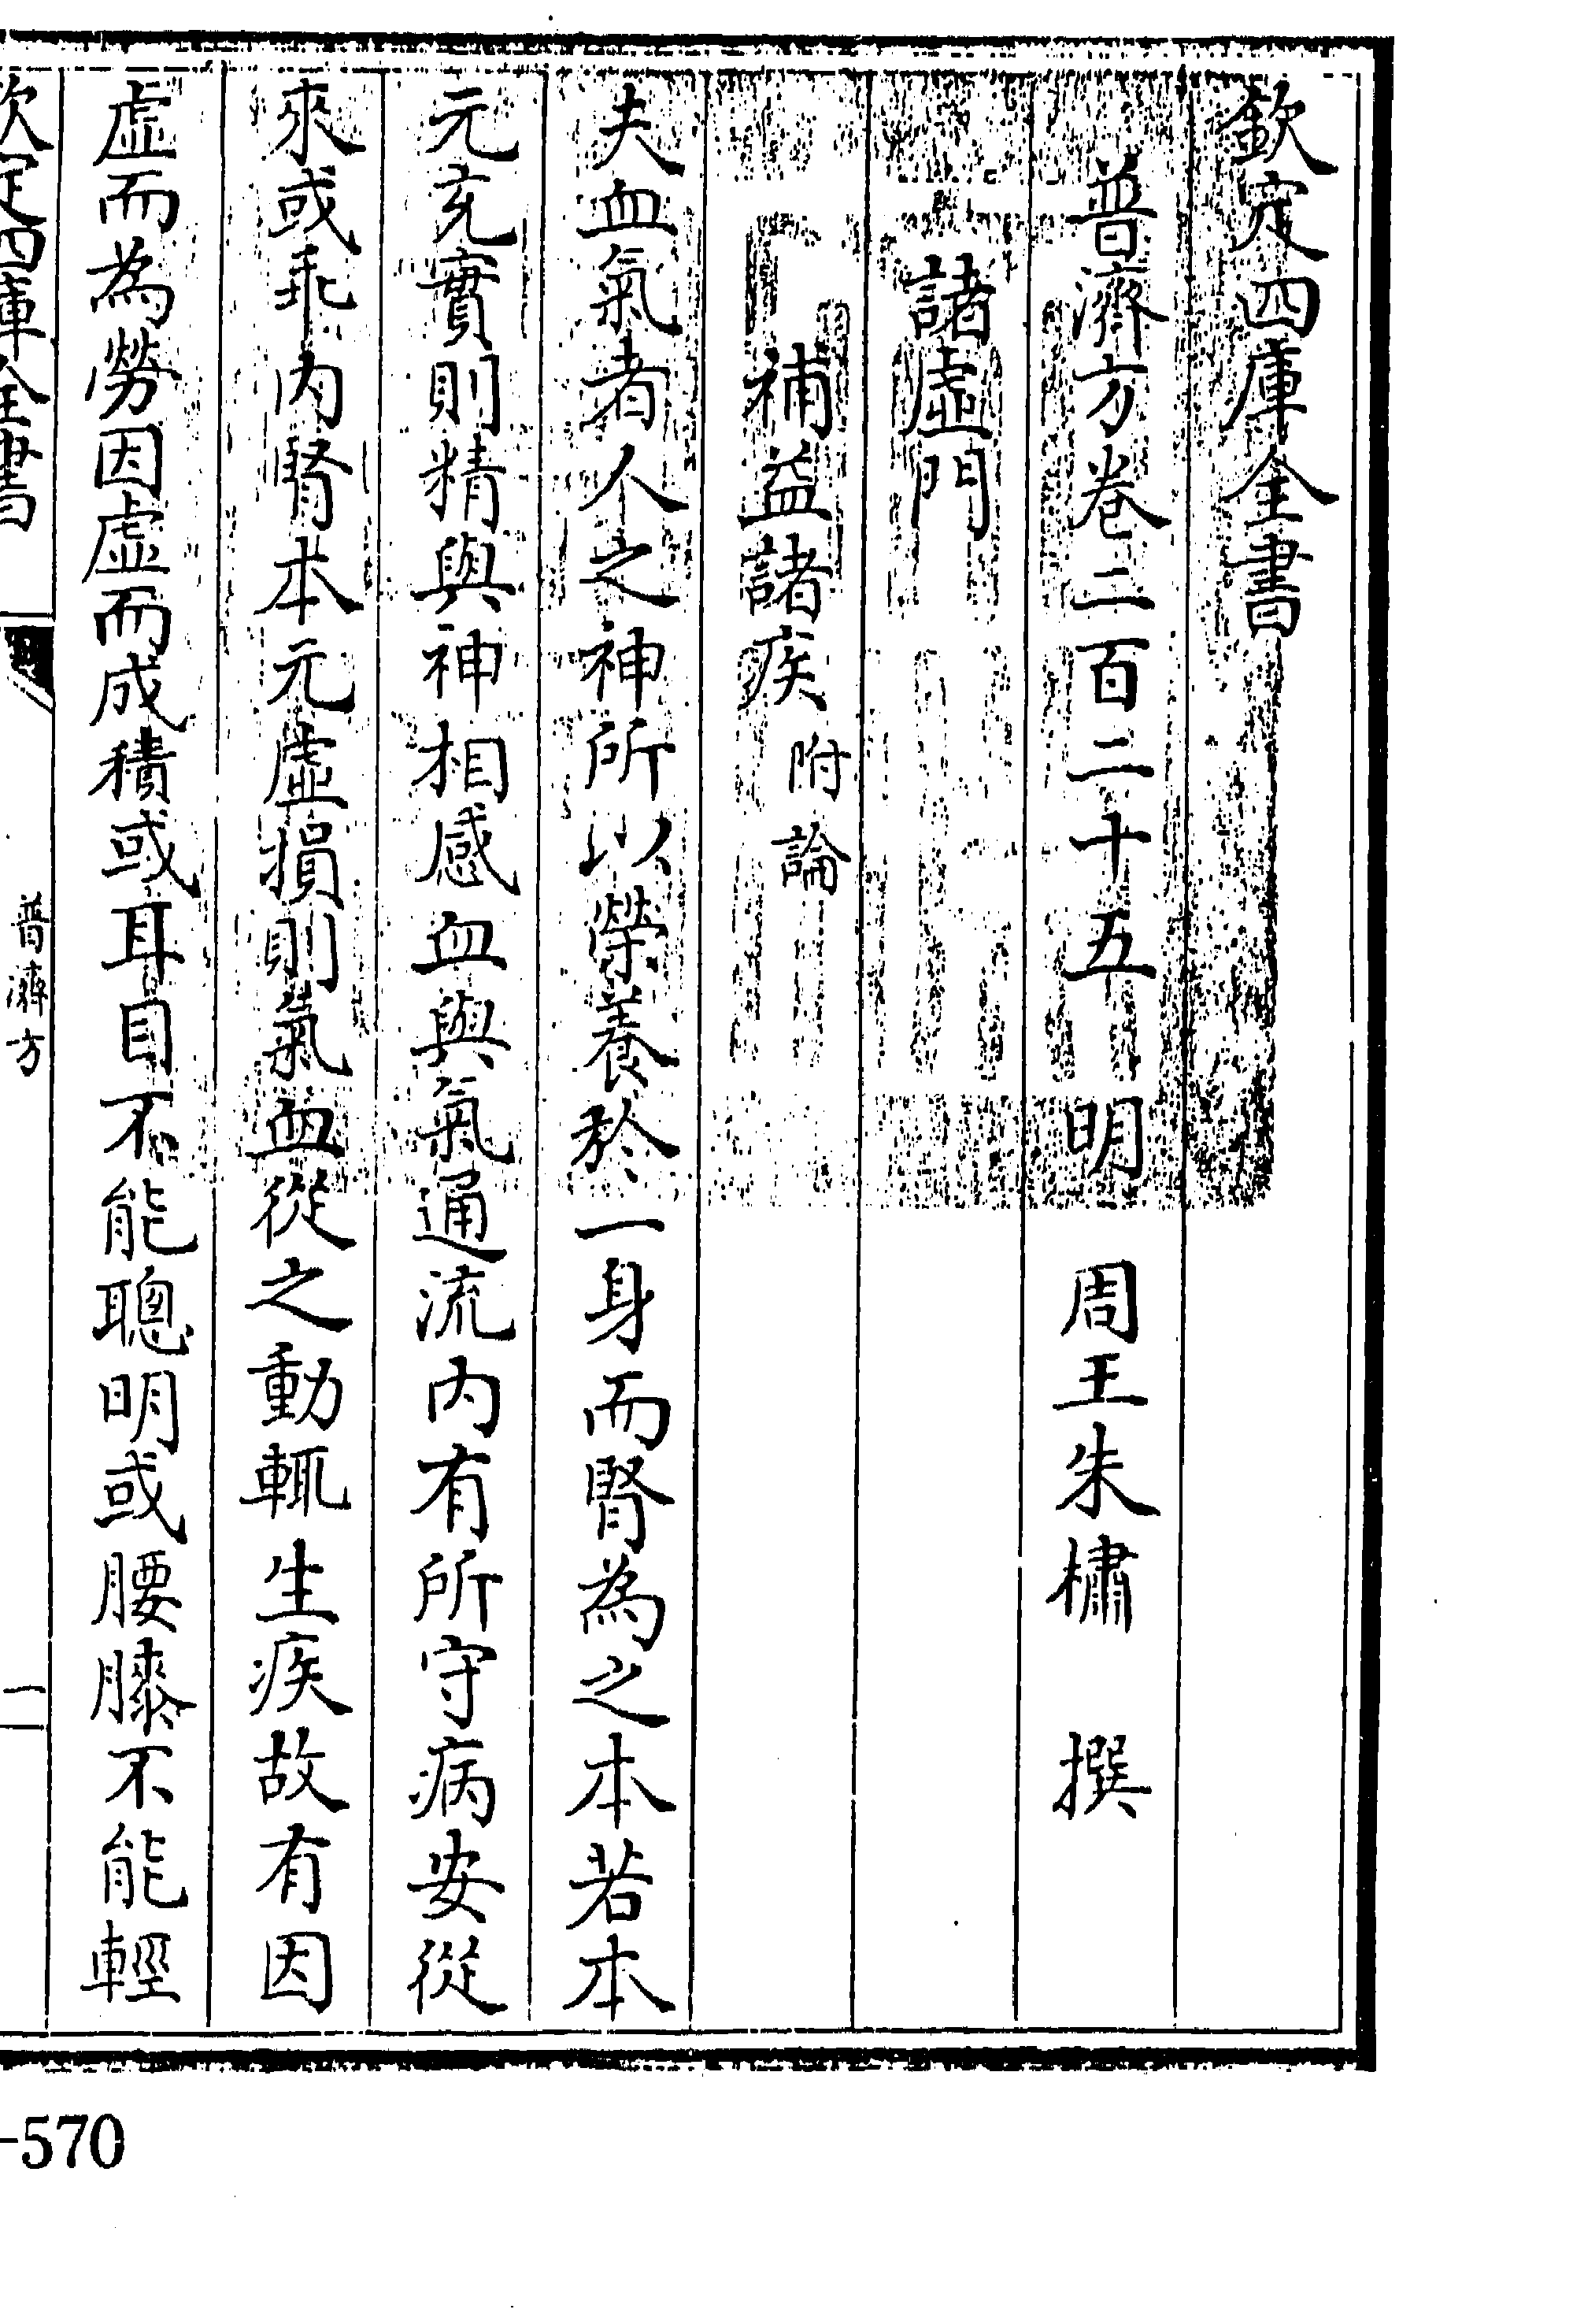 欽定四庫全書
普濟方卷二百二十五　明　周王朱橚　撰
諸虛門
補益諸疾附論
夫血氣者人之神所以榮養於一身而腎為之本若本
元充實則精與神相感血與氣通流内有所守病安從
來或乖内腎本元虛損則氣血從之動輒生疾故有因
虛而為勞因虛而成積或耳目不能聰明或腰膝不能輕
欽定四庫全書
普濟方
一
-570